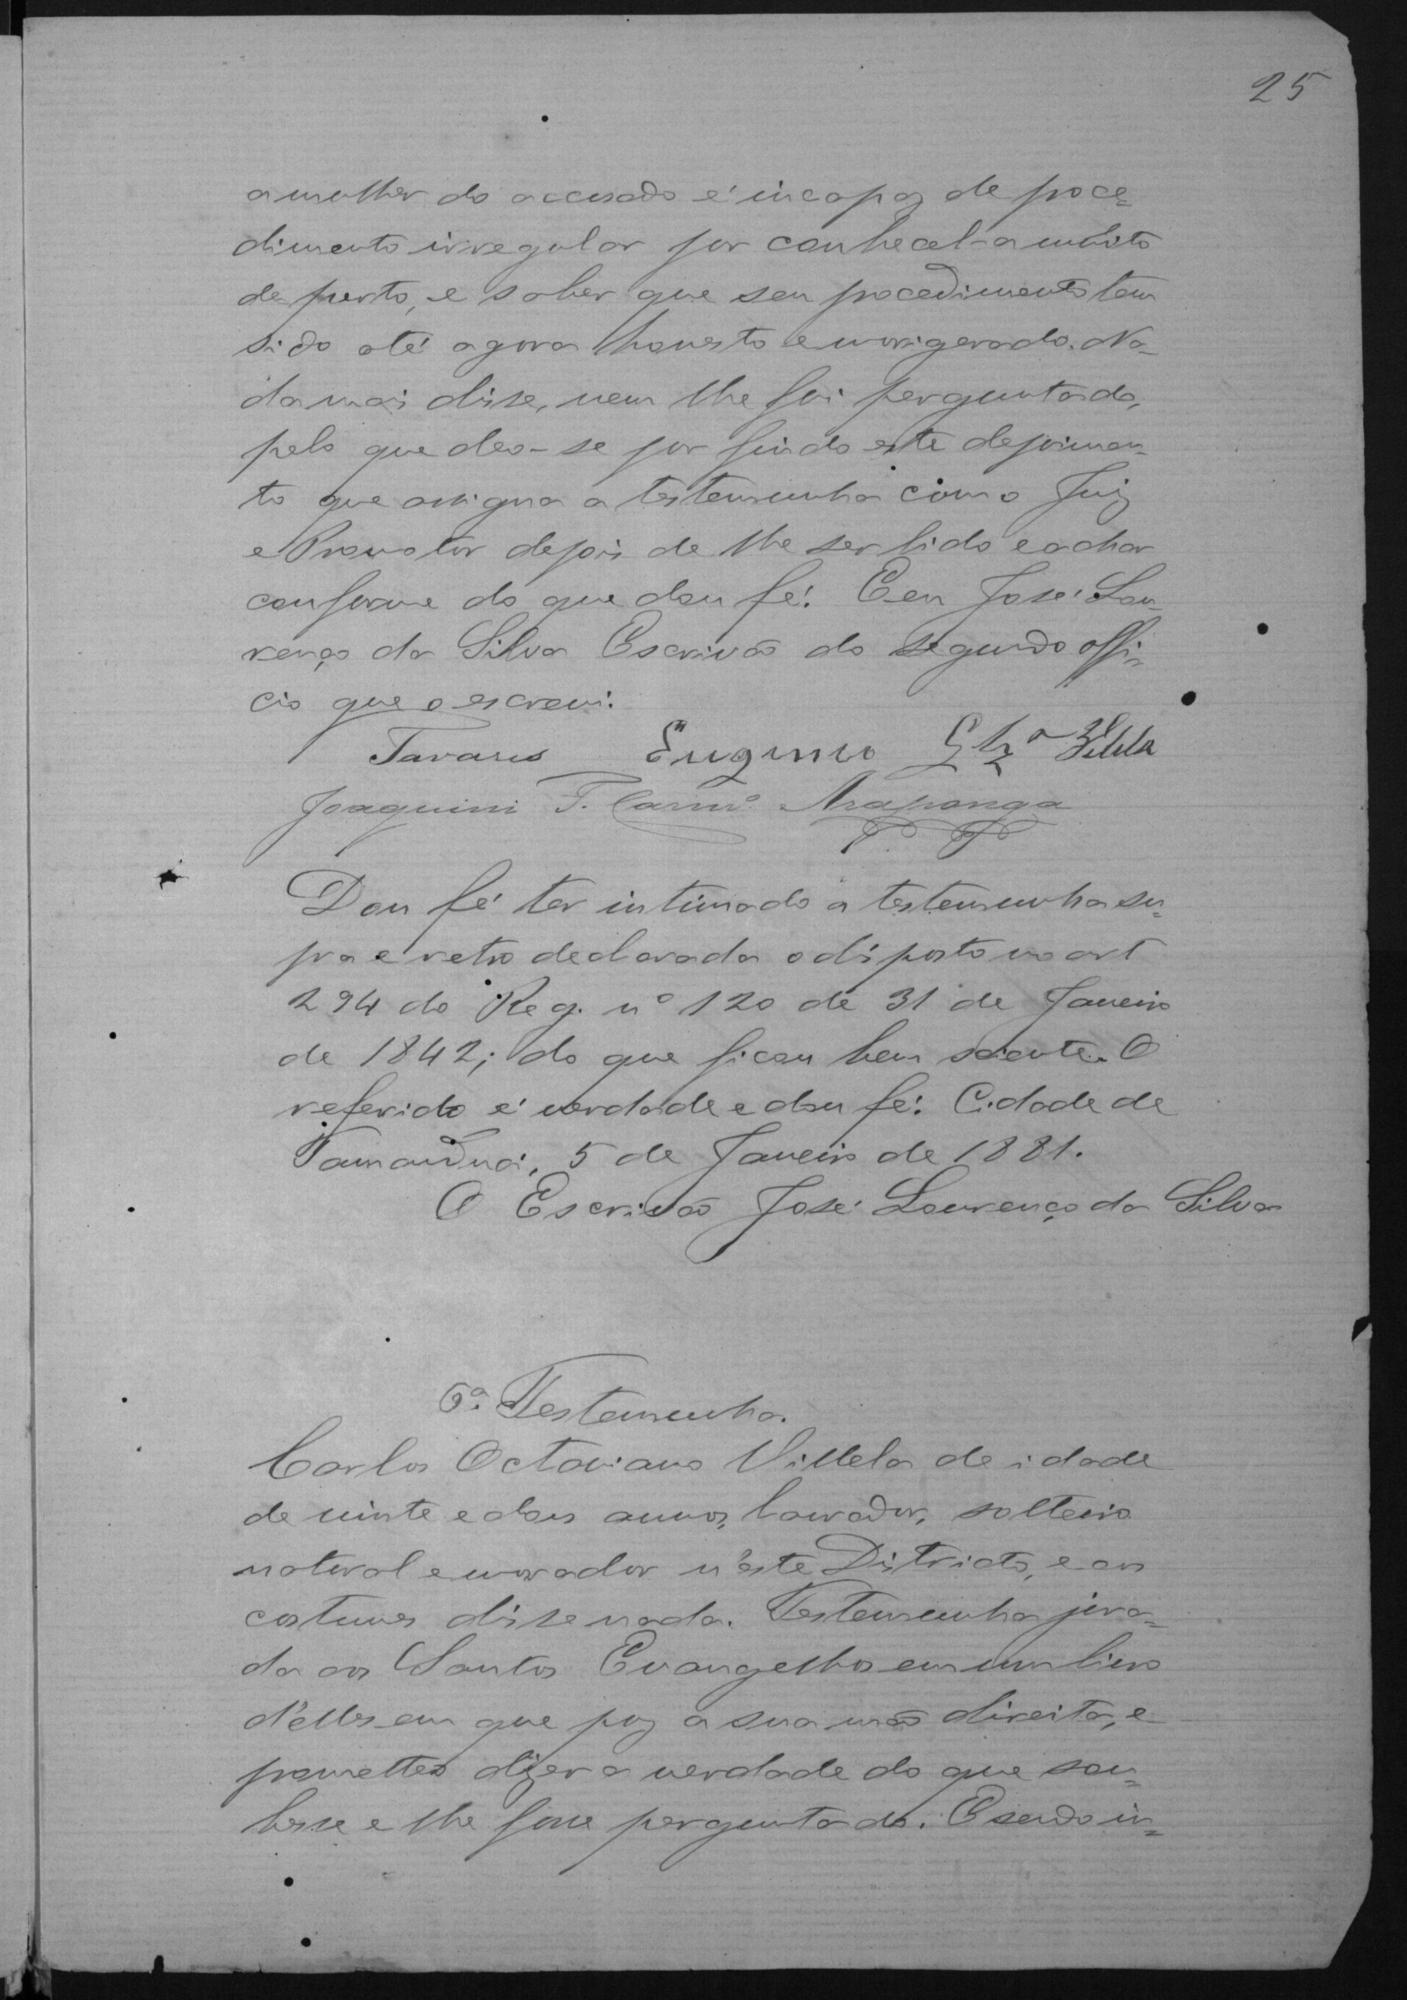 25
a mulher do accusado é incapaz de proce=
dimento irregular por conhecel-a muito
de perto, e saber que seu procedimento tem
sido até agora honesto e morigerado. Na=
da mais disse, nem lhe foi perguntado,
pelo que deo-se por findo este depoimen=
to que assigna a testemunha com o Juiz
e Promotor depois de lhe ser lido e achar
conforme do que dou fé. E eu José Lou=
renço da Silva Escrivão do segundo offi=
cio que o escrevi.
Tavares Eugenio
Joaquim F. Carnro. Araponga
Dou fé ter intimado a testemunha su=
pra e retro declarada o disposto no art
294 do Reg. nº 120 de 31 de Janeiro
de 1842; do que ficou bem sciente. O
referido é verdade e dou fé. Cidade de
Tamanduá, 5 de Janeiro de 1881.
O Escrivão José Lourenço da Silva
Testemunha.
Carlos Octaviano Villela de idade
de vinte e dous annos, lavrador, solteiro
natural e morador n'este Districto, e aos
costumes disse nada. Testemunha jura=
da aos Santos Evangelhos em um livro
d'elles em que poz a sua mão direita, e
prometteo dizer a verdade do que sou=
besse e lhe fosse perguntado. E sendo in=